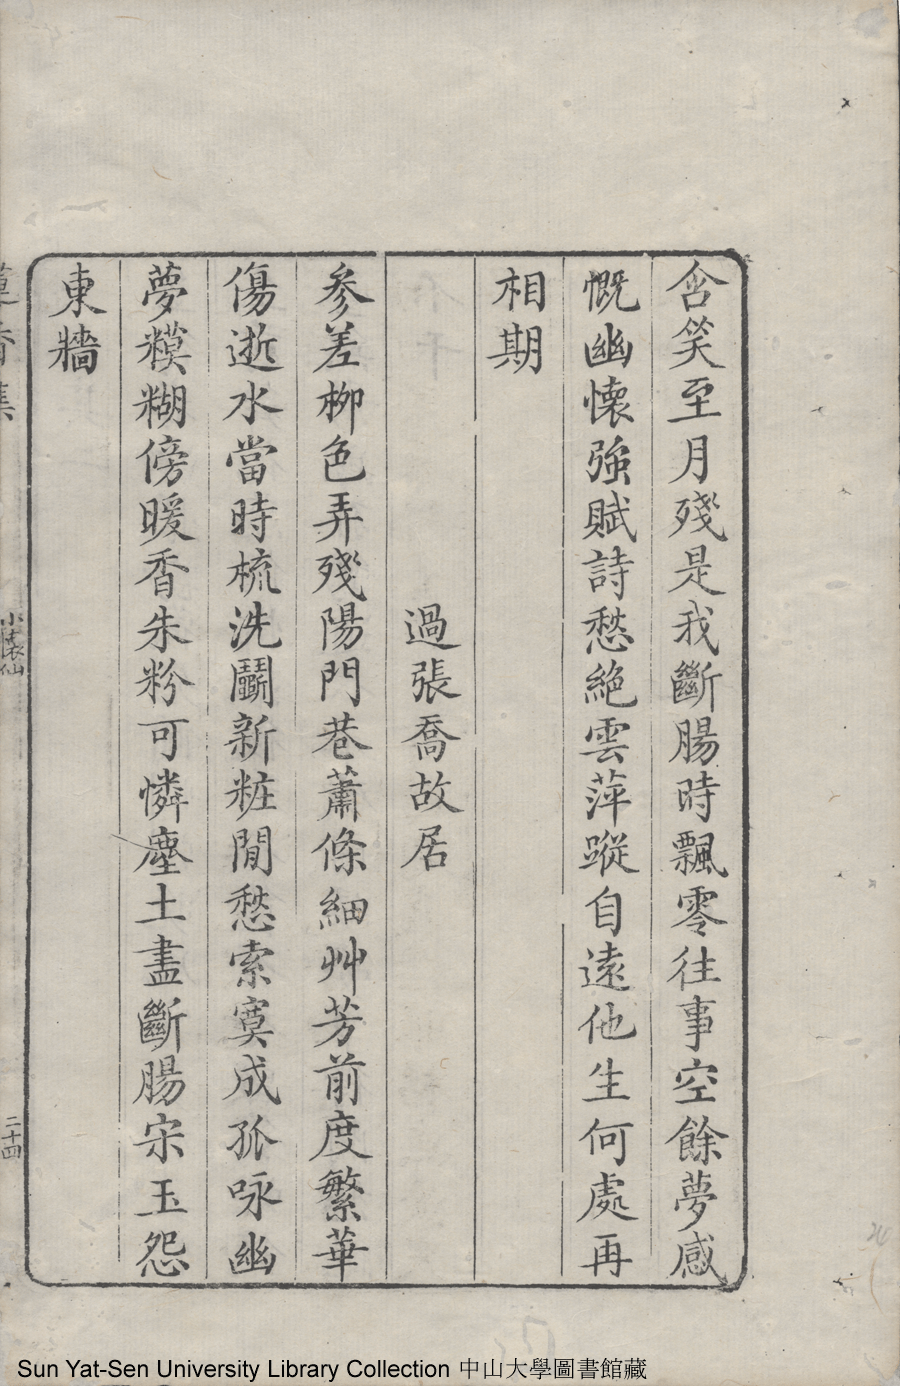 含笑至月殘是我斷腸時飄零往事空餘夢感
慨幽懷強賦詩愁絕雲萍蹤自遠他生何處再
相期
過張喬故居
參差柳色弄殘陽門巷蕭條細艸芳前度繁華
傷逝水當時梳洗鬭新粧閒愁索寞成孤咏幽
夢糢糊傍暖香朱粉可憐塵土盡斷腸宋玉怨
東牆
香集
小懷仙
二十四
Sun Yat-Sen University Library Collection 中山大學圖書館藏